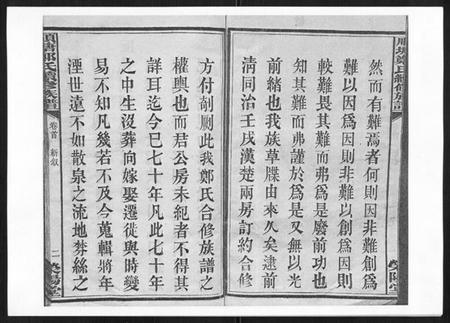 然而有難焉者何則因非難創爲
難以因爲因則非難以創爲因則
較難畏其難而弗爲是廢前功也
知其難而弗謹於爲是又無以光
前緒也我族草牒由來久矣逮前
清同治壬戌漢楚兩房訂約合修
方付剞劂此我鄭氏合修族譜之
權輿也而君公房未紀者不得其
詳耳迄今已七十年凡此七十年
之中生沒葬向嫁娶遷徙與時變
易不知凡幾若不及今蒐輯將年
湮世遠不如散泉之流地棼絲之
卷首
新敘
二
滎陽堂